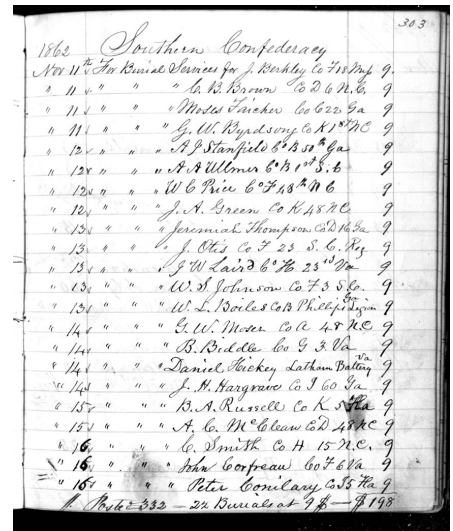 303
1862 Southern Confederacy
Nov 11th For Burial Services for J. Berkley Co F 18 Miss 9.
" 11 " " " C. B. Brown Co D 6 N.C. 9
" 11 " " " Moses Faicher Co C 22 Ga 9
" 11 " " " G. W. Byrdsong Co K 1st NC 9
" 12 " " " A J Stanfield Co B 50th Ga 9
" 12 " " " A A Ulmer Co B 1st S.C 9
" 12 " " " W C Price Co F 48th N C 9
" 12 " " " J. A. Green Co K 48 NC 9
" 13 " " " Jeremiah Thompson Co D 16 Ga 9
" 13 " " " J. Otis Co F 23 S. C. Reg 9
" 13 " " " J W Laird Co H. 23rd Va 9
" 13 " " " W. S. Johnson Co. F 3 S Co. 9
" 13 " " " W. L. Boiles Co B Phillips Legion Ga 9
" 14 " " " G. W. Moser Co A 48 NC 9
" 14 " " " B. Biddle Co G 3. Va 9
" 14 " " " Daniel Hickey Latham Battery Va 9
" 14 " " " J. H. Hargrave Co I 60 Ga 9
" 15 " " " B. A. Russell Co K 5 Fla 9
" 15 " " " A. C. McClean Co D 48 NC 9
" 16 " " " C. Smith Co H 15 N.C. 9
" 16 " " " John Corfreau Co F 6 Va 9
" 16 " " " Peter Conilary Co I 5 Fla 9
Posted 332 — 22 Burials at 9 $ — $ 198